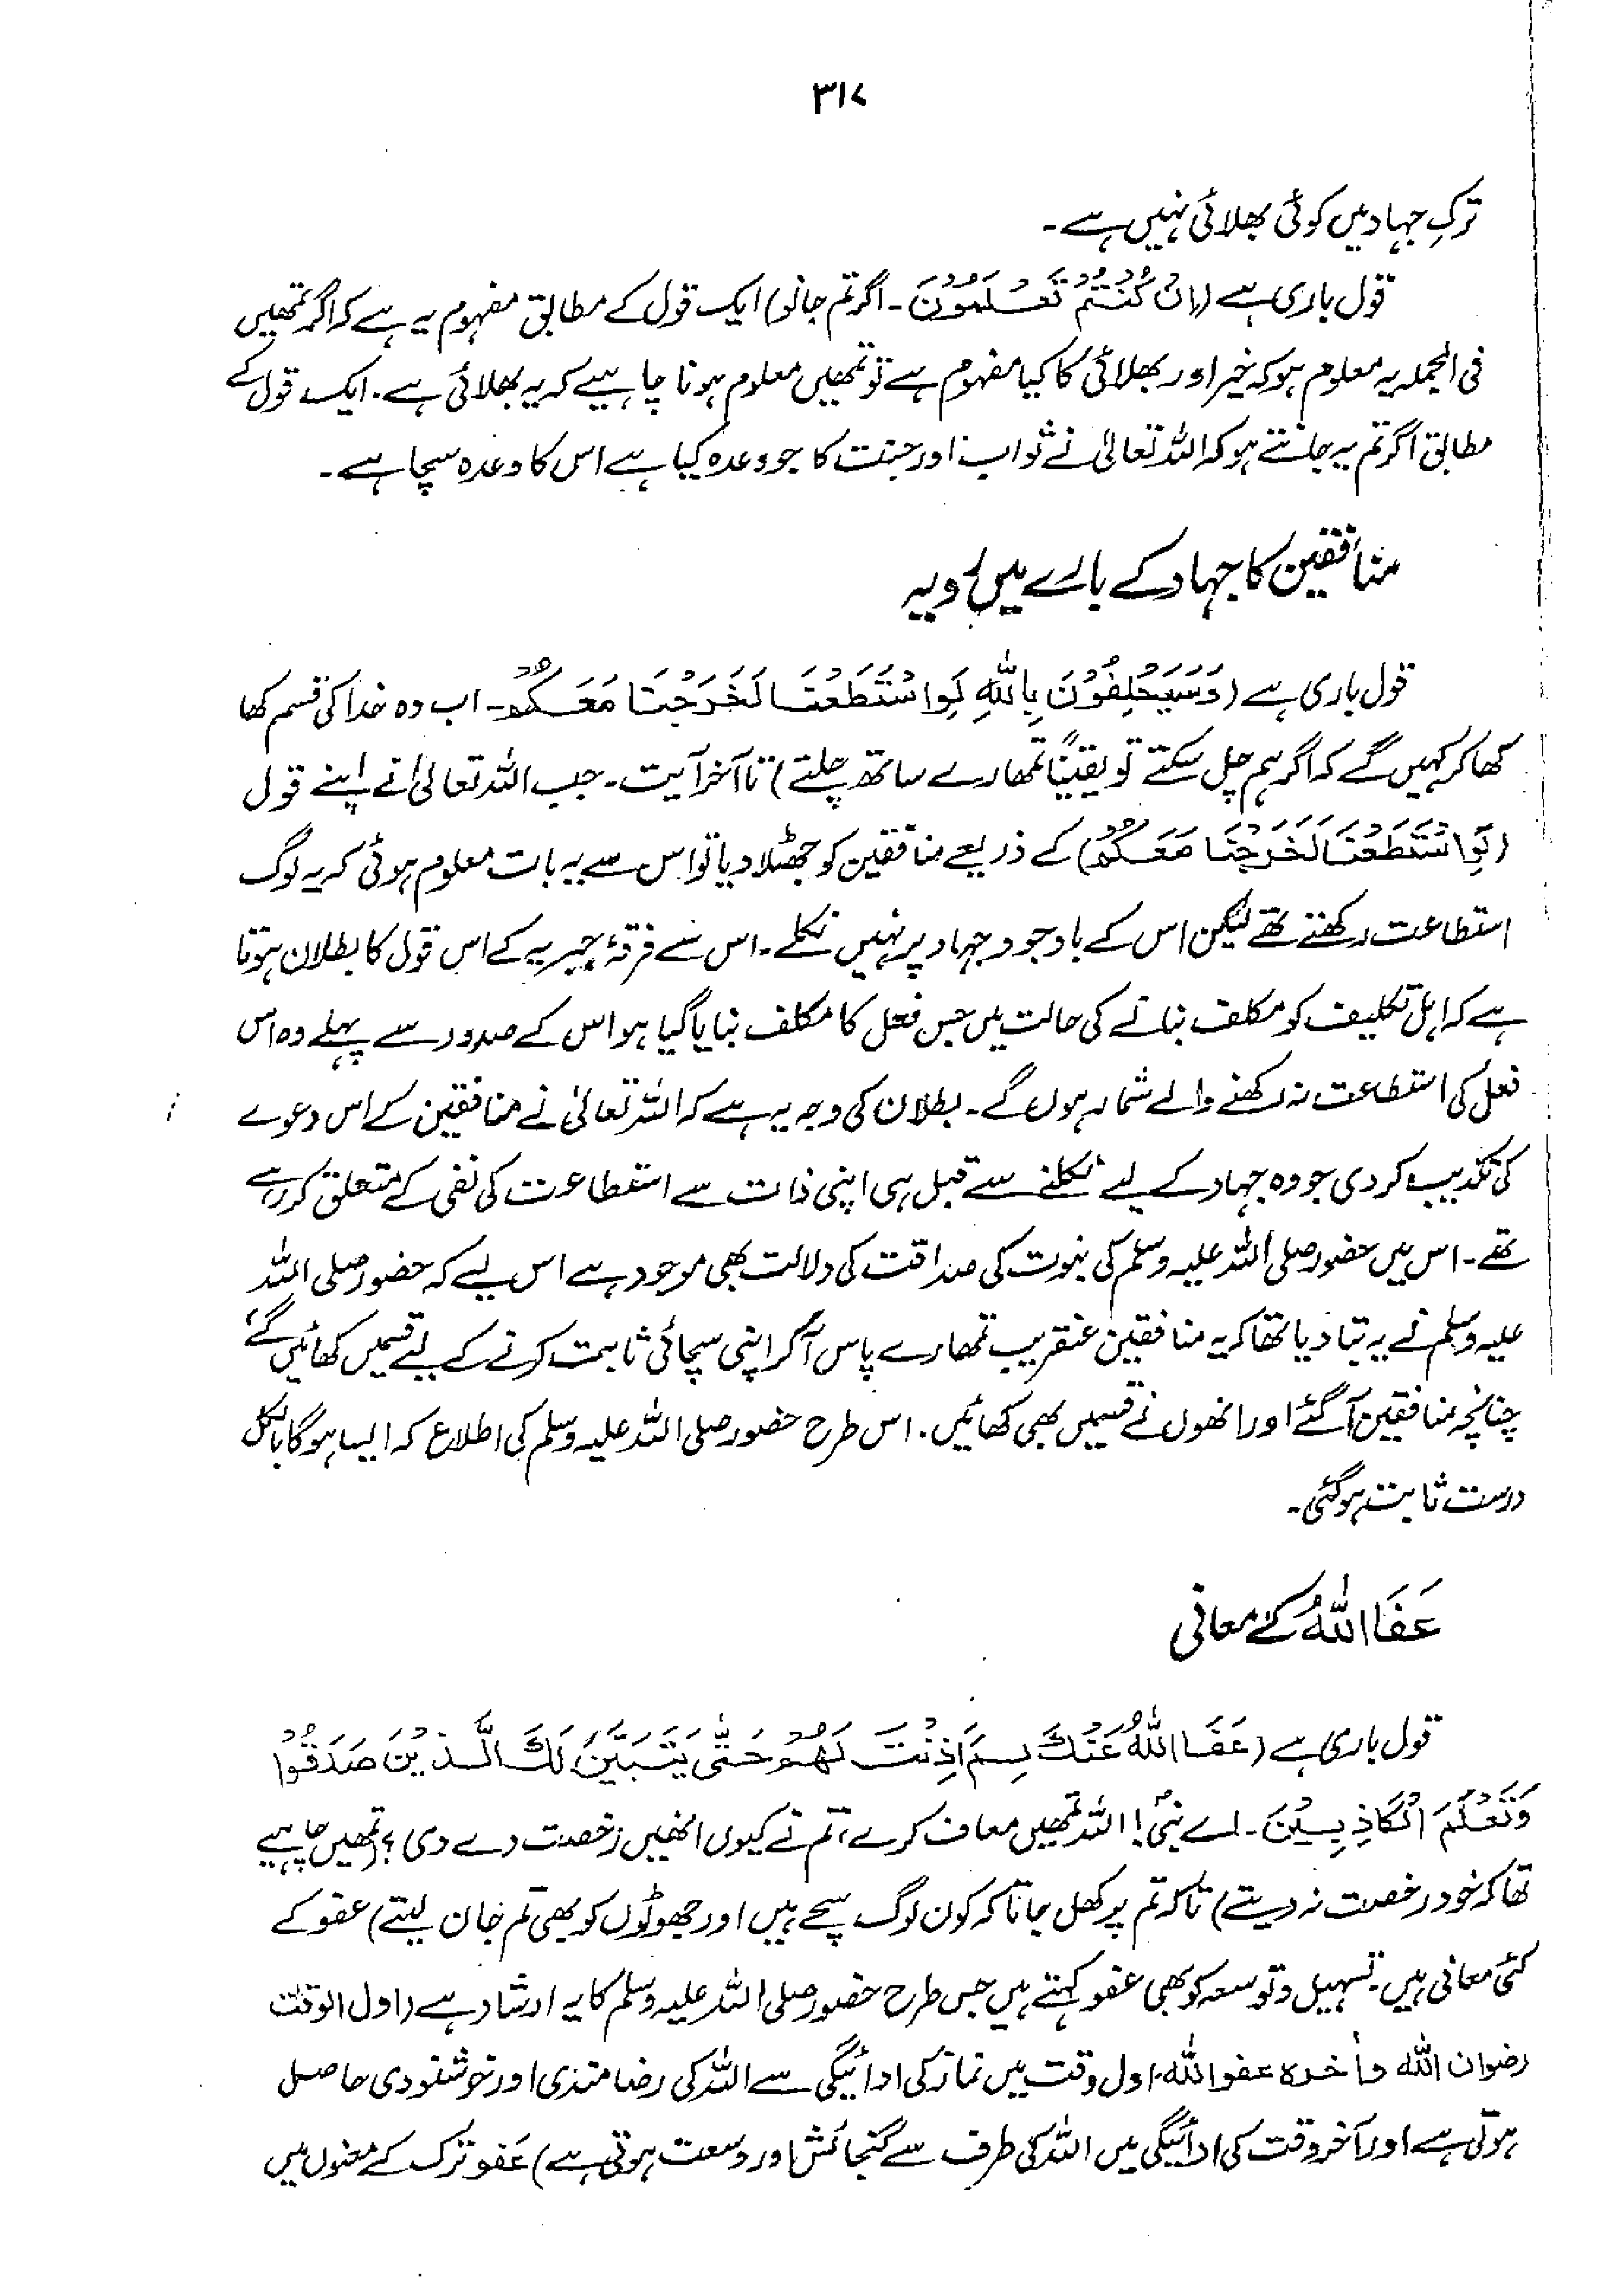 ۳۱۷
ترکِ جہاد میں کوئی بھلائی نہیں ہے۔
قول باری ہے (اِنْ كُنْتُمْ تَعْلَمُوْنَ۔ اگر تم جانو) ایک قول کے مطابق مفہوم یہ ہے کہ اگر تمھیں
فی الجملہ یہ معلوم ہو کہ خیر اور بھلائی کا کیا مفہوم ہے تو تمھیں معلوم ہونا چاہیے کہ یہ بھلائی ہے۔ ایک قول کے
مطابق اگر تم یہ جانتے ہو کہ اللہ تعالیٰ نے ثواب اور جنت کا جو وعدہ کیا ہے اس کا وعدہ سچا ہے۔
منافقین کا جہاد کے بارے میں رویہ
قول باری ہے (وَسَيَحْلِفُوْنَ بِاللّٰهِ لَوِ اسْتَطَعْنَا لَخَرَجْنَا مَعَكُمْ۔ اب وہ خدا کی قسم کھا
کھا کر کہیں گے کہ اگر ہم چل سکتے تو یقیناً تمھارے ساتھ چلتے) تا آخر آیت۔ جب اللہ تعالیٰ نے اپنے قول
(لَوِ اسْتَطَعْنَا لَخَرَجْنَا مَعَكُمْ) کے ذریعے منافقین کو جھٹلا دیا تو اس سے یہ بات معلوم ہوئی کہ یہ لوگ
استطاعت رکھتے تھے لیکن اس کے باوجود جہاد پر نہیں نکلے۔ اس سے فرقۂ جبریہ کے اس قول کا بطلان ہوتا
ہے کہ اہل تکلیف کو مکلف بنانے کی حالت میں جس فعل کا مکلف بنایا گیا ہو اس کے صدور سے پہلے وہ اس
فعل کی استطاعت نہ رکھنے والے شمار ہوں گے۔ بطلان کی وجہ یہ ہے کہ اللہ تعالیٰ نے منافقین کے اس دعوے
کی تکذیب کر دی جو وہ جہاد کے لیے نکلنے سے قبل ہی اپنی ذات سے استطاعت کی نفی کے متعلق کر رہے
تھے۔ اس میں حضور صلی اللہ علیہ وسلم کی نبوت کی صداقت کی دلالت بھی موجود ہے اس لیے کہ حضور صلی اللہ
علیہ وسلم نے یہ بتا دیا تھا کہ یہ منافقین عنقریب تمھارے پاس آ کر اپنی سچائی ثابت کرنے کے لیے قسمیں کھائیں گے
چنانچہ منافقین آ گئے اور انھوں نے قسمیں بھی کھائیں۔ اس طرح حضور صلی اللہ علیہ وسلم کی اطلاع کہ ایسا ہوگا بالکل
درست ثابت ہو گئی۔
عَفَا اللّٰهُ کے معانی
قول باری ہے (عَفَا اللّٰهُ عَنْكَ لِمَ اَذِنْتَ لَهُمْ حَتّٰى يَتَبَيَّنَ لَكَ الَّذِيْنَ صَدَقُوْا
وَتَعْلَمَ الْكَاذِبِيْنَ۔ اے نبیؐ! اللہ تمھیں معاف کرے، تم نے کیوں انھیں رخصت دے دی؟ (تمھیں چاہیے
تھا کہ خود رخصت نہ دیتے) تاکہ تم پر کھل جاتا کہ کون لوگ سچے ہیں اور جھوٹوں کو بھی تم جان لیتے) عفو کے
کئی معانی ہیں۔ تسہیل و توسعہ کو بھی عفو کہتے ہیں جس طرح حضور صلی اللہ علیہ وسلم کا یہ ارشاد ہے (اول الوقت
رضوان اللہ وآخرہ عفو اللہ۔ اول وقت میں نماز کی ادائیگی سے اللہ کی رضا مندی اور خوشنودی حاصل
ہوتی ہے اور آخر وقت کی ادائیگی میں اللہ کی طرف سے گنجائش اور وسعت ہوتی ہے) عفو ترک کے معنوں میں